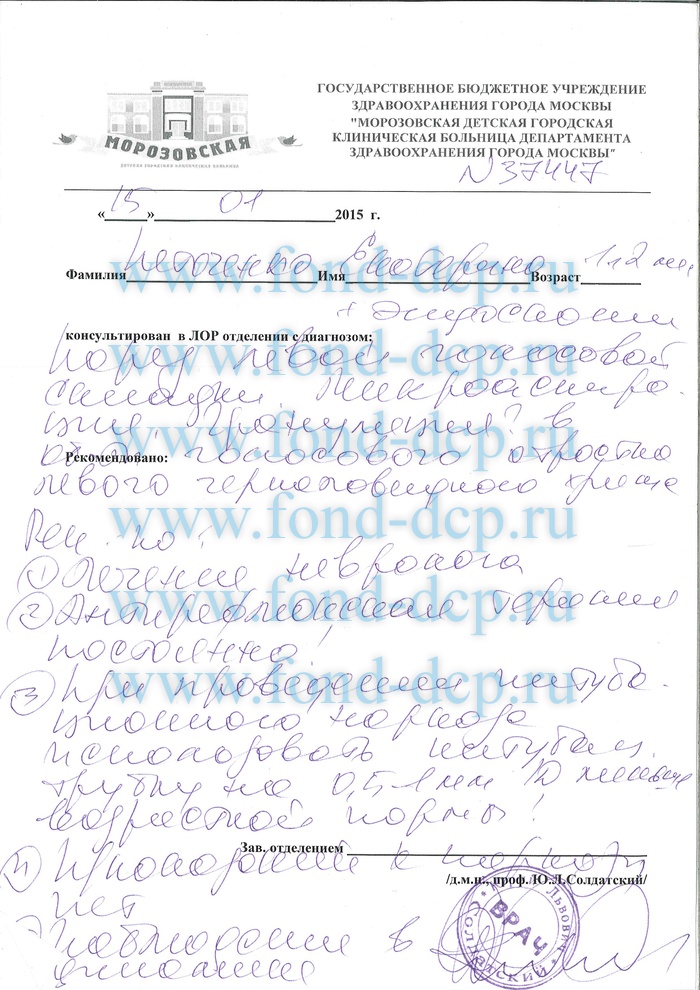 МОРОЗОВСКАЯ
ДЕТСКАЯ ГОРОДСКАЯ КЛИНИЧЕСКАЯ БОЛЬНИЦА
ГОСУДАРСТВЕННОЕ БЮДЖЕТНОЕ УЧРЕЖДЕНИЕ
ЗДРАВООХРАНЕНИЯ ГОРОДА МОСКВЫ
"МОРОЗОВСКАЯ ДЕТСКАЯ ГОРОДСКАЯ
КЛИНИЧЕСКАЯ БОЛЬНИЦА ДЕПАРТАМЕНТА
ЗДРАВООХРАНЕНИЯ ГОРОДА МОСКВЫ"
N 37447
«15» 01 2015 г.
www.fond-dcp.ru
Фамилия Имя Екатерина Возраст
+ Эндоскопия
консультирован в ЛОР отделении с диагнозом:
www.fond-dcp.ru
Парез левой голосовой
складки. Микроаспира-
ция. Грануляция? в
www.fond-dcp.ru
Рекомендовано:
обл. голосового отростка
левого черпаловидного хряща
www.fond-dcp.ru
Рек-но:
① Лечение невролога
② Антирефлюксная терапия
www.fond-dcp.ru
постоянно!
www.fond-dcp.ru
③ При проведении интуба-
ционного наркоза
использовать интубац.
трубку на 0,5-1 мм D меньше
возрастной нормы!
Зав. отделением
④ к наркозу
/д.м.н., проф. Ю.Л.Солдатский/
нет
Наблюдение в
динамике
ВРАЧ
Солдатский Львович